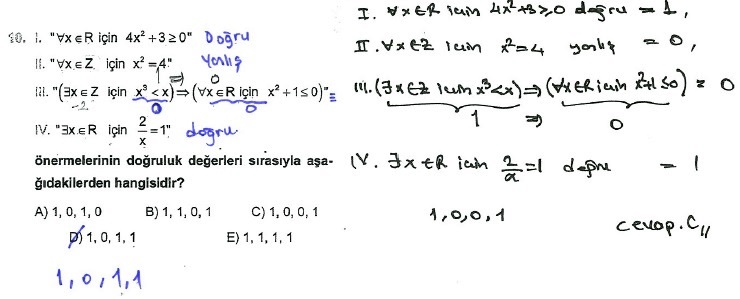 10. I. "∀x∈R için 4x² + 3 ≥ 0" Doğru
II. "∀x∈Z için x² = 4" Yanlış
1 ⇒ 0
III. "(∃x∈Z için x³ < x) ⇒ (∀x∈R için x² + 1 ≤ 0)" ≡
-2 0 0
IV. "∃x∈R için 2/x = 1" doğru
önermelerinin doğruluk değerleri sırasıyla aşa-
ğıdakilerden hangisidir?
A) 1, 0, 1, 0 B) 1, 1, 0, 1 C) 1, 0, 0, 1
D) 1, 0, 1, 1 E) 1, 1, 1, 1
1, 0, 1, 1
I. ∀x∈R için 4x²+3≥0 doğru = 1,
II. ∀x∈Z için x²=4 yanlış = 0,
III. (∃x∈Z için x³<x) ⇒ (∀x∈R için x²+1≤0) = 0
1 ⇒ 0
IV. ∃x∈R için 2/x = 1 doğru = 1
1,0,0,1
cevap. C//